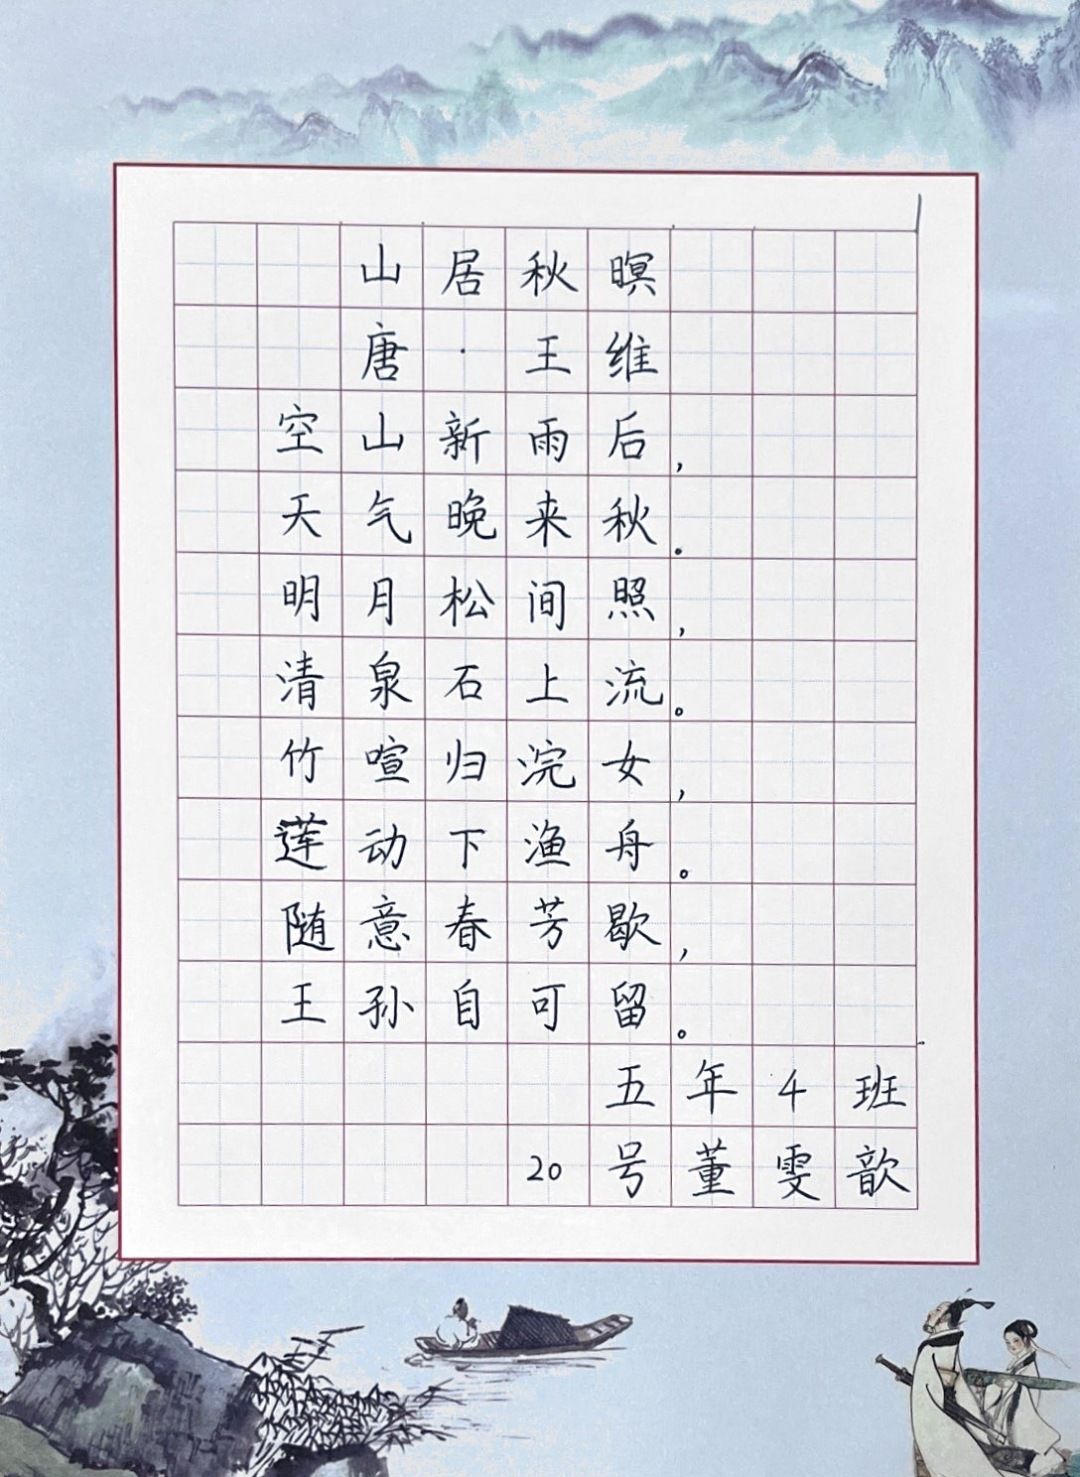 山居秋暝
唐·王维
空山新雨后，
天气晚来秋。
明月松间照，
清泉石上流。
竹喧归浣女，
莲动下渔舟。
随意春芳歇，
王孙自可留。
五年4班
20号董雯歆